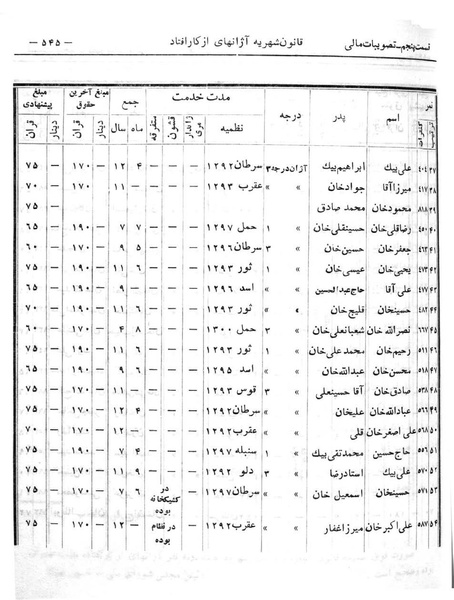 قسمت پنجم ـ تصویبات مالی قانون شهریه آژانهای از کار افتاد — ۵۴۵ —
نمره ترتیب اسم پدر درجه مدت خدمت جمع مبلغ آخرین حقوق مبلغ پیشنهادی
نظمیه ژاندارمری قشون متفرقه ماه سال دینار قران دینار قران
۳۷ علی بیك ابراهیم بیك آژان درجه ۳ سرطان ۱۲۹۲ — — — ۴ ۱۲ — ۱۷۰ — ۷۵
۳۸ میرزا آقا جواد خان » » عقرب ۱۲۹۳ — — — — ۱۱ — ۱۷۰ — ۷۰
۳۹ محمود خان محمد صادق ۷۵
۴۰ رضاقلی خان حسینقلی خان » ۱ حمل ۱۲۹۷ — — — ۷ ۷ — ۱۹۰ — ۶۵
۴۱ جعفر خان حسین خان » ۳ سرطان ۱۲۹۶ — — — ۵ ۹ — ۱۷۰ — ۶۰
۴۲ یحیی خان عیسی خان » ۱ ثور ۱۲۹۳ — — — ۶ ۱۱ — ۱۹۰ — ۷۵
۴۳ علی آقا حاج عبدالحسین » » اسد ۱۲۹۶ — — — — ۹ — ۱۹۰ — ۶۵
۴۴ حسینخان قلیج خان » » ثور ۱۲۹۳ — — — ۶ ۱۱ — ۱۹۰ — ۷۰
۴۵ نصرالله خان شعبانعلی خان » ۳ حمل ۱۳۰۰ — — — ۸ ۴ — ۱۷۰ — ۶۰
۴۶ رحیم خان محمد علی خان » ۱ ثور ۱۲۹۳ — — — ۶ ۱۱ — ۱۹۰ — ۷۵
۴۷ محسن خان عبدالله خان » » اسد ۱۲۹۵ — — — ۶ ۹ — ۱۹۰ — ۶۵
۴۸ صادق خان آقا حسینعلی » ۳ قوس ۱۲۹۳ — — — — ۱۱ — ۱۷۰ — ۷۰
۴۹ عباد الله خان علیخان » » سرطان ۱۲۹۲ — — — ۴ ۱۲ — ۱۷۰ — ۷۵
۵۰ علی اصغر خان قلی » » عقرب ۱۲۹۲ — — — — ۱۲ — ۱۷۰ — ۷۵
۵۱ حاج حسین محمد تقی بیك » ۱ سنبله ۱۲۹۷ — — — ۴ ۷ — ۱۹۰ — ۷۵
۵۲ علی بیك استاد رضا » ۳ دلو ۱۲۹۲ — — — ۹ ۱۱ — ۱۷۰ — ۷۵
۵۳ حسینخان اسمعیل خان » » سرطان ۱۲۹۷ — — در کشیکخانه بوده ۶ ۷ — ۱۷۰ — ۷۵
۵۴ علی اکبر خان میرزا غفار » » عقرب ۱۲۹۲ — — در نظام بوده — ۱۲ — ۱۷۰ — ۷۵